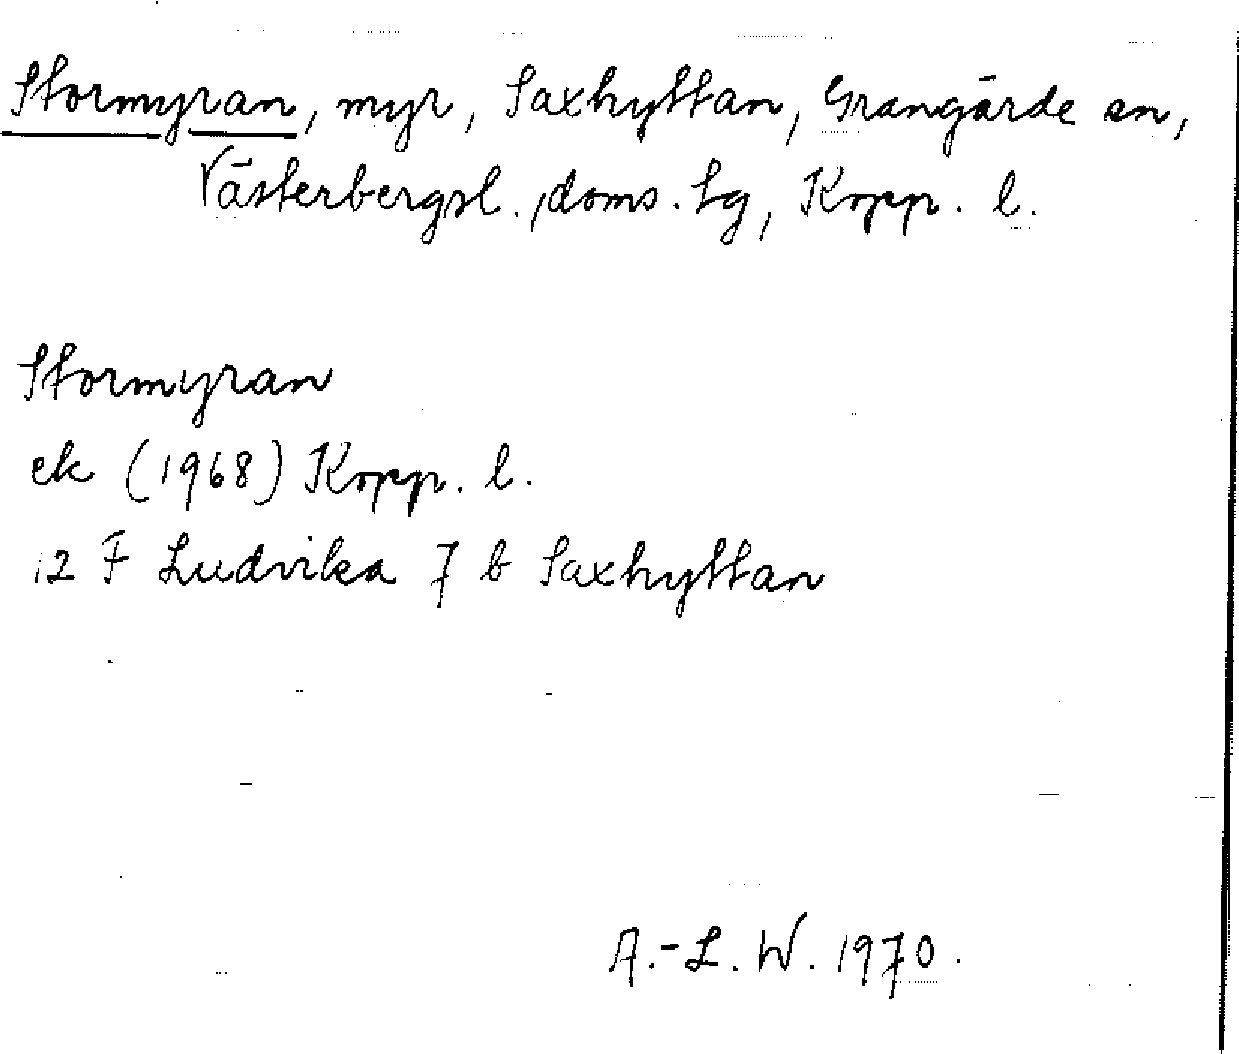 Stormyran, myr, Saxhyttan, Grangärde sn,
Västerbergsl. doms. tg, Kopp. l.
Stormyran
ek (1968) Kopp. l.
12 F Ludvika 7 b Saxhyttan
A.-L. W. 1970.